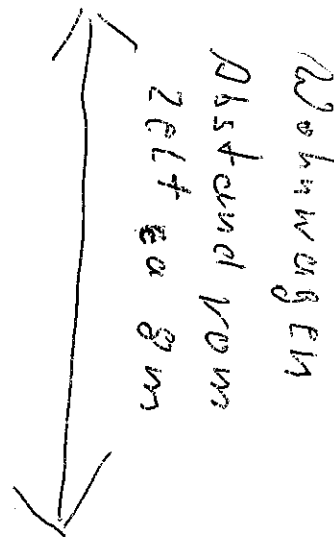 Wohnwagen
Abstand vom
Zelt ca 8m